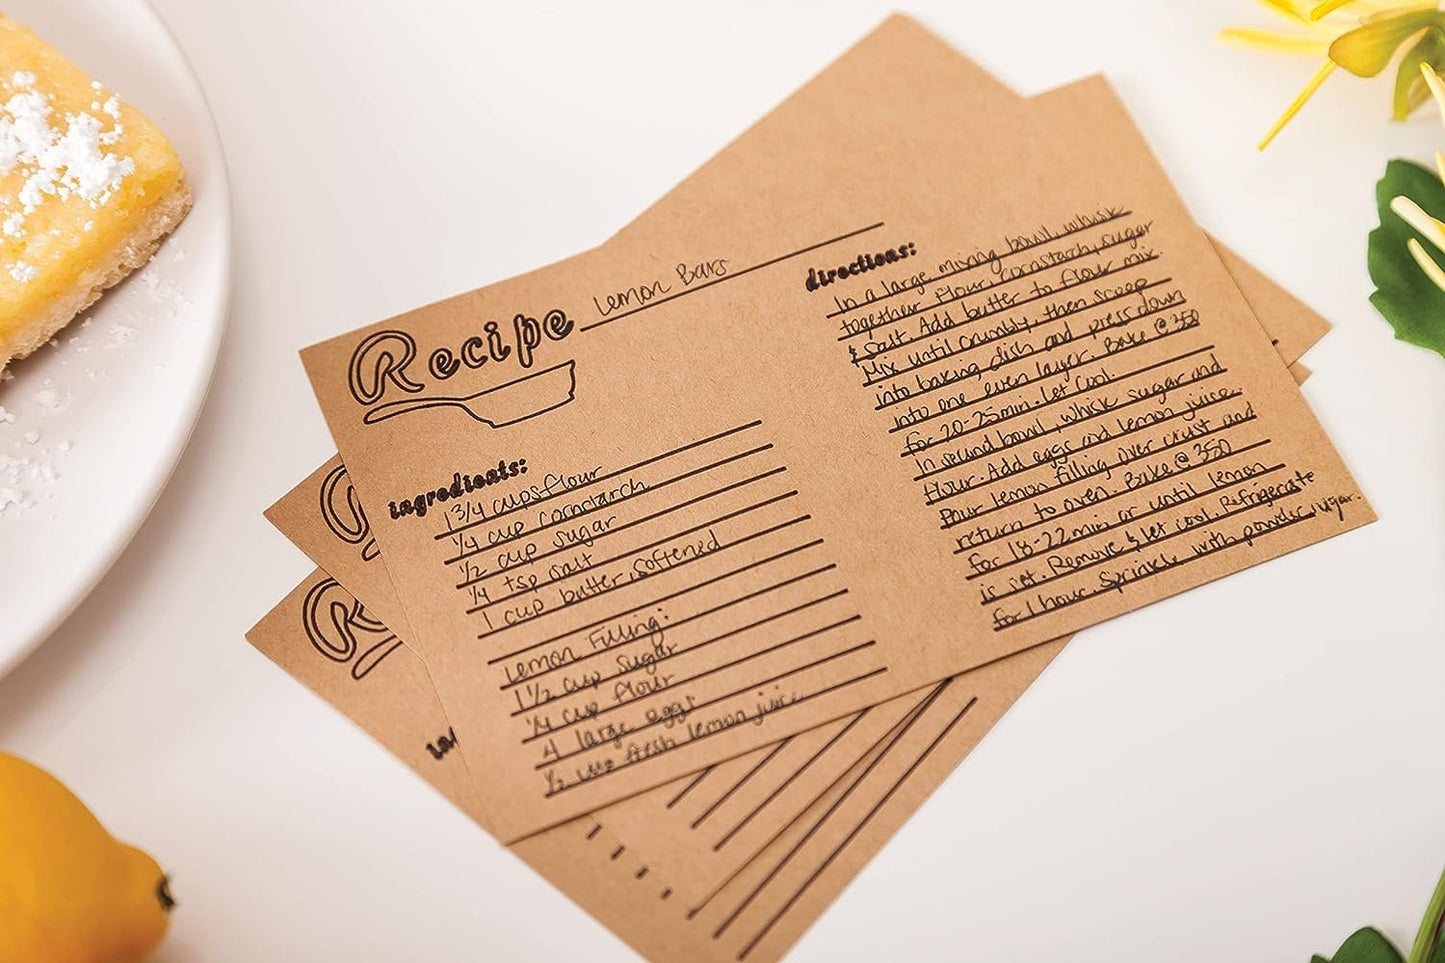 Recipe Lemon Bars
ingredients:
1 3/4 cups flour
1/4 cup cornstarch
1/2 cup sugar
1/4 tsp salt
1 cup butter, softened
Lemon Filling:
1 1/2 cup sugar
1/4 cup flour
4 large eggs
1/2 cup fresh lemon juice
directions:
In a large mixing bowl, whisk
together flour, cornstarch, sugar
& salt. Add butter to flour mix.
Mix until crumbly, then scoop
into baking dish and press down
into one even layer. Bake @ 350
for 20-25min. Let cool.
In second bowl, whisk sugar and
flour. Add eggs and lemon juice.
Pour lemon filling over crust and
return to oven. Bake @ 350
for 18-22min or until lemon
is set. Remove & let cool. Refrigerate
for 1 hour. Sprinkle with powder sugar.
R
R
in